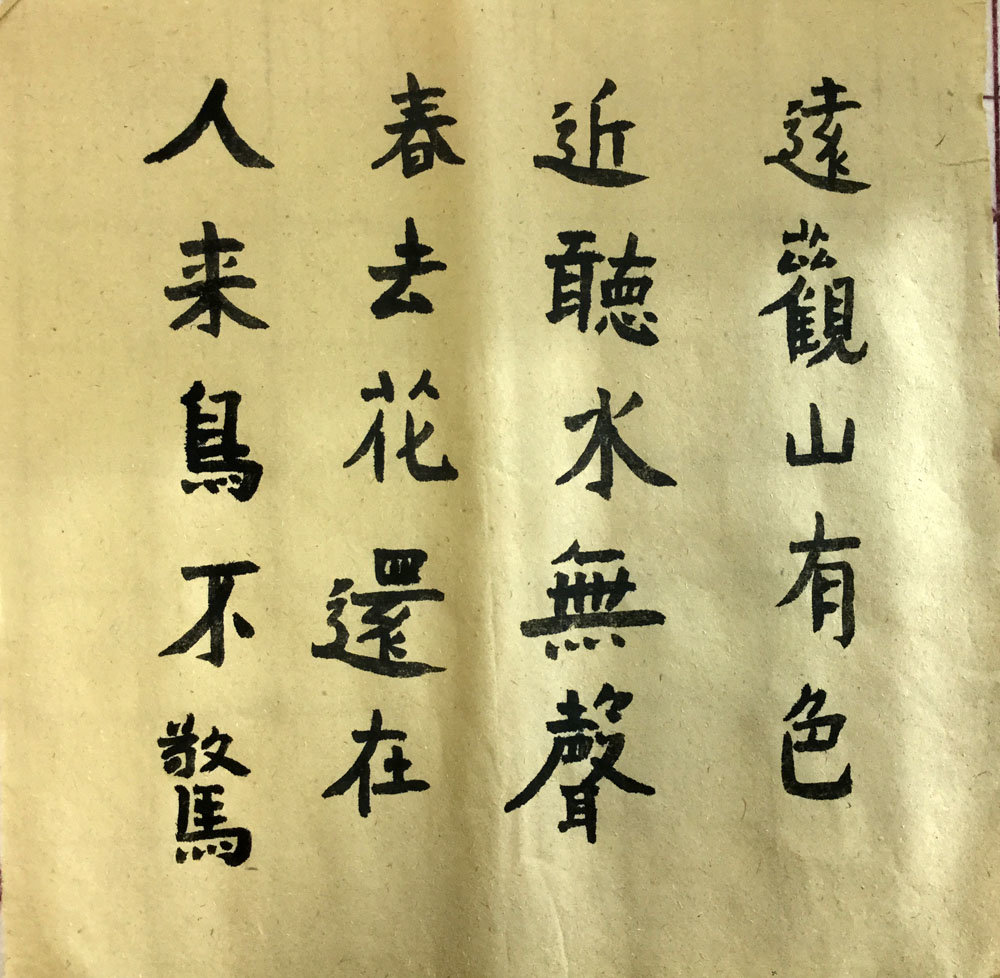 遠觀山有色
近聽水無聲
春去花還在
人来鳥不驚